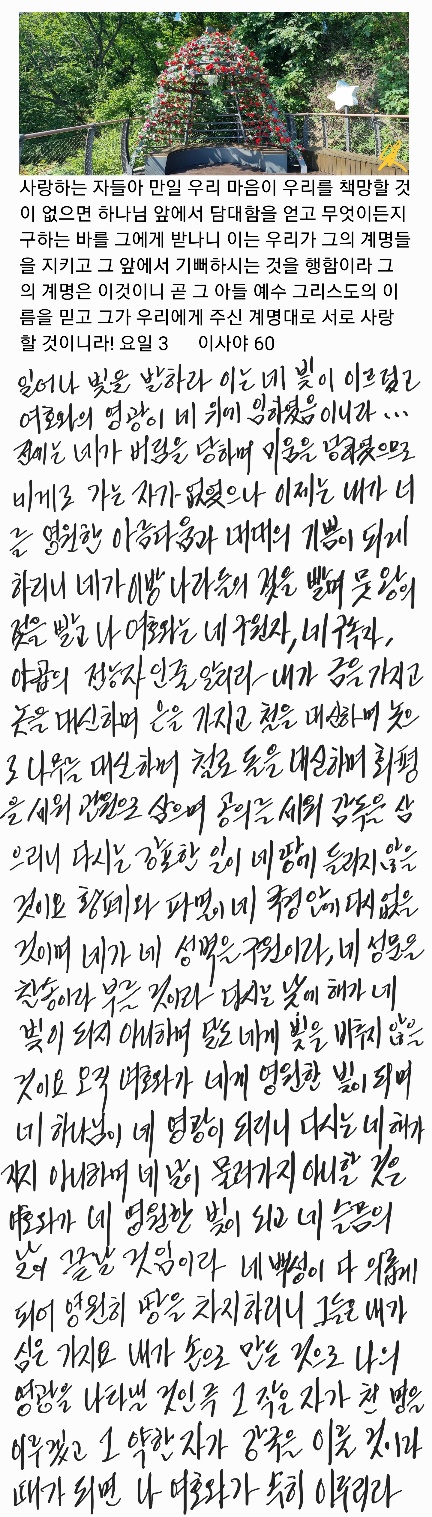 사랑하는 자들아 만일 우리 마음이 우리를 책망할 것
이 없으면 하나님 앞에서 담대함을 얻고 무엇이든지
구하는 바를 그에게 받나니 이는 우리가 그의 계명들
을 지키고 그 앞에서 기뻐하시는 것을 행함이라 그
의 계명은 이것이니 곧 그 아들 예수 그리스도의 이
름을 믿고 그가 우리에게 주신 계명대로 서로 사랑
할 것이니라! 요일 3 이사야 60
일어나 빛을 발하라 이는 네 빛이 이르렀고
여호와의 영광이 네 위에 임하였음이니라 ...
전에는 네가 버림을 당하며 미움을 당하였으므로
네게로 가는 자가 없었으나 이제는 내가 너
를 영원한 아름다움과 대대의 기쁨이 되게
하리니 네가 이방 나라들의 젖을 빨며 뭇 왕의
젖을 빨고 나 여호와는 네 구원자, 네 구속자,
야곱의 전능자인줄 알리라 내가 금을 가지고
놋을 대신하며 은을 가지고 철을 대신하며 놋으
로 나무를 대신하며 철로 돌을 대신하며 화평
을 세워 관원으로 삼으며 공의를 세워 감독을 삼
으리니 다시는 강포한 일이 네 땅에 들리지 않을
것이요 황폐와 파멸이 네 국경 안에 다시 없을
것이며 네가 네 성벽을 구원이라, 네 성문을
찬송이라 부를 것이라 다시는 낮에 해가 네
빛이 되지 아니하며 달도 네게 빛을 비추지 않을
것이요 오직 여호와가 네게 영원한 빛이 되며
네 하나님이 네 영광이 되리니 다시는 네 해가
지지 아니하며 네 달이 물러가지 아니할 것은
여호와가 네 영원한 빛이 되고 네 슬픔의
날이 끝날 것임이라 네 백성이 다 의롭게
되어 영원히 땅을 차지하리니 그들은 내가
심은 가지요 내가 손으로 만든 것으로 나의
영광을 나타낼 것인즉 그 작은 자가 천 명을
이루겠고 그 약한 자가 강국을 이룰 것이라
때가 되면 나 여호와가 속히 이루리라